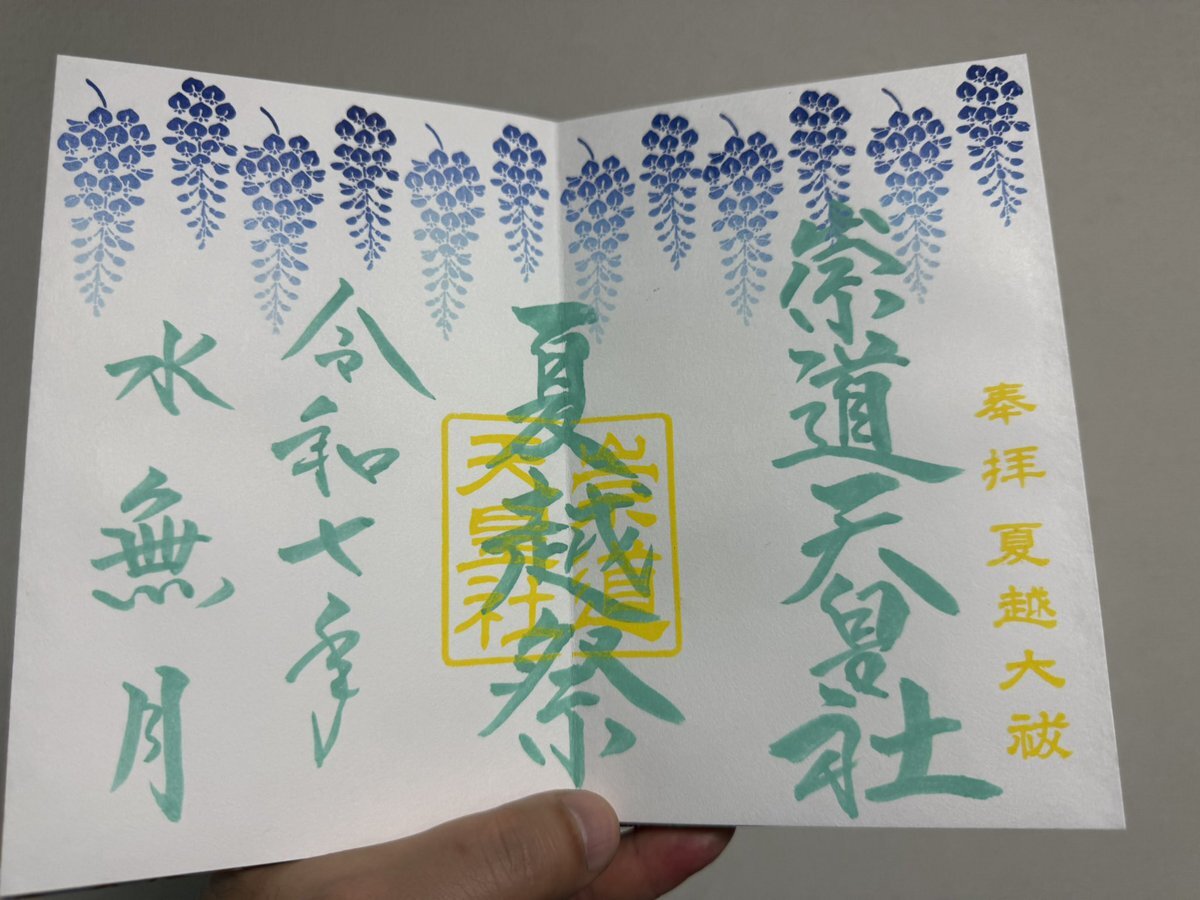 奉拝 夏越大祓
崇道天皇社
夏越祭
崇道
天皇社
令和七年
水無月